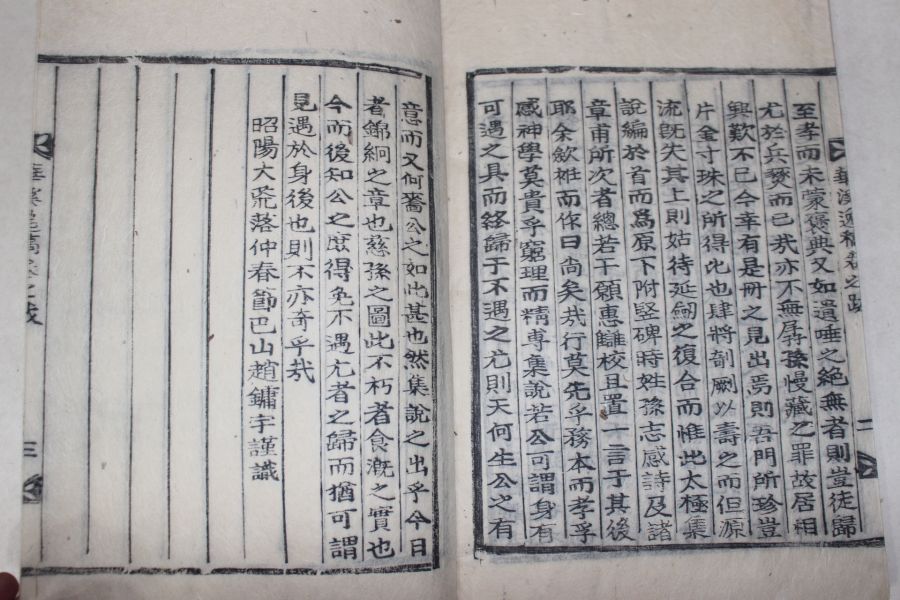 至孝而未蒙褒典又如遺唾之絶無者則豈徒歸
尤於兵燹而已哉亦不無孱孫慢藏之罪故居相
興歎不已今幸有是冊之見出焉則吾門所珍豈
片金寸珠之所得比也肆將剞劂以壽之而但源
流旣失其上則姑待延劒之復合而惟此太極集
說編於首而爲原下附竪碑時姓孫志感詩及諸
章甫所次者總若干願惠讎校且置一言于其後
耶余斂袵而作曰尙矣哉行莫先乎務本而孝孚
感神學莫貴乎窮理而精專集說若公可謂身有
可遇之具而終歸于不遇之尤則天何生公之有
意而又何嗇公之如此甚也然集說之出乎今日
者錦絅之章也慈孫之圖此不朽者食漑之實也
今而後知公之庶得免不遇尤者之歸而猶可謂
見遇於身後也則不亦奇乎哉
昭陽大荒落仲春節巴山趙鏞宇謹識
華溪逸稿卷之跋
二
華溪逸稿卷之跋
三